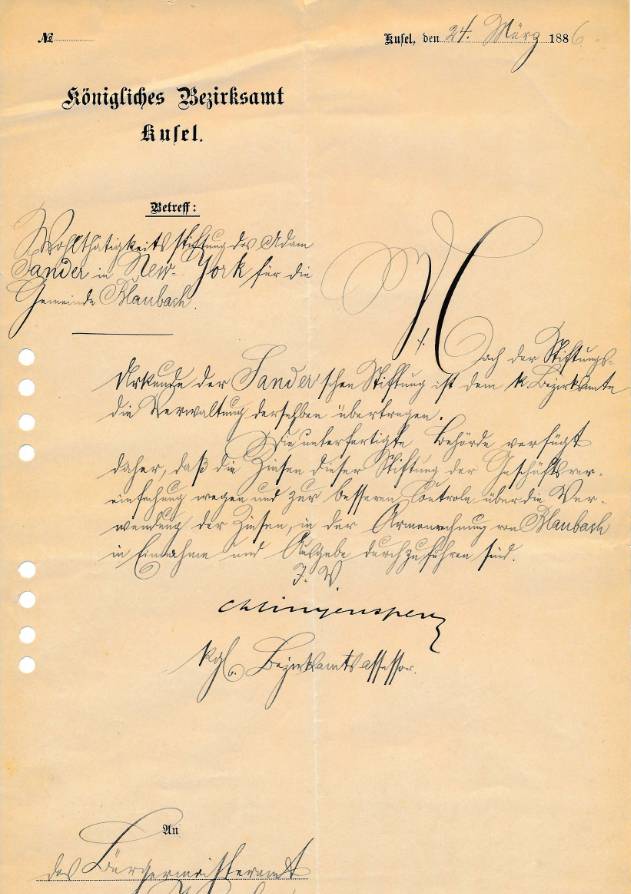 №
Kusel, den 24. März 1886.
Königliches Bezirksamt
Kusel.
Betreff:
Wohlthätigkeitsstiftung des Adam
Sander in New-York für die
Gemeinde Blaubach.
Nach der Stiftungs-
Urkunde der Sander'schen Stiftung ist dem k. Bezirksamte
die Verwaltung derselben übertragen.
Die unterfertigte Behörde verfügt
daher, daß die Zinsen dieser Stiftung der Geschäftsver-
einfachung wegen und zur besseren Controle über die Ver-
wendung der Zinsen, in der Armenrechnung von Blaubach
in Einnahme und Ausgabe durchzuführen sind.
J. V.
kgl. Bezirksamtsassessor.
An
das Bürgermeisteramt